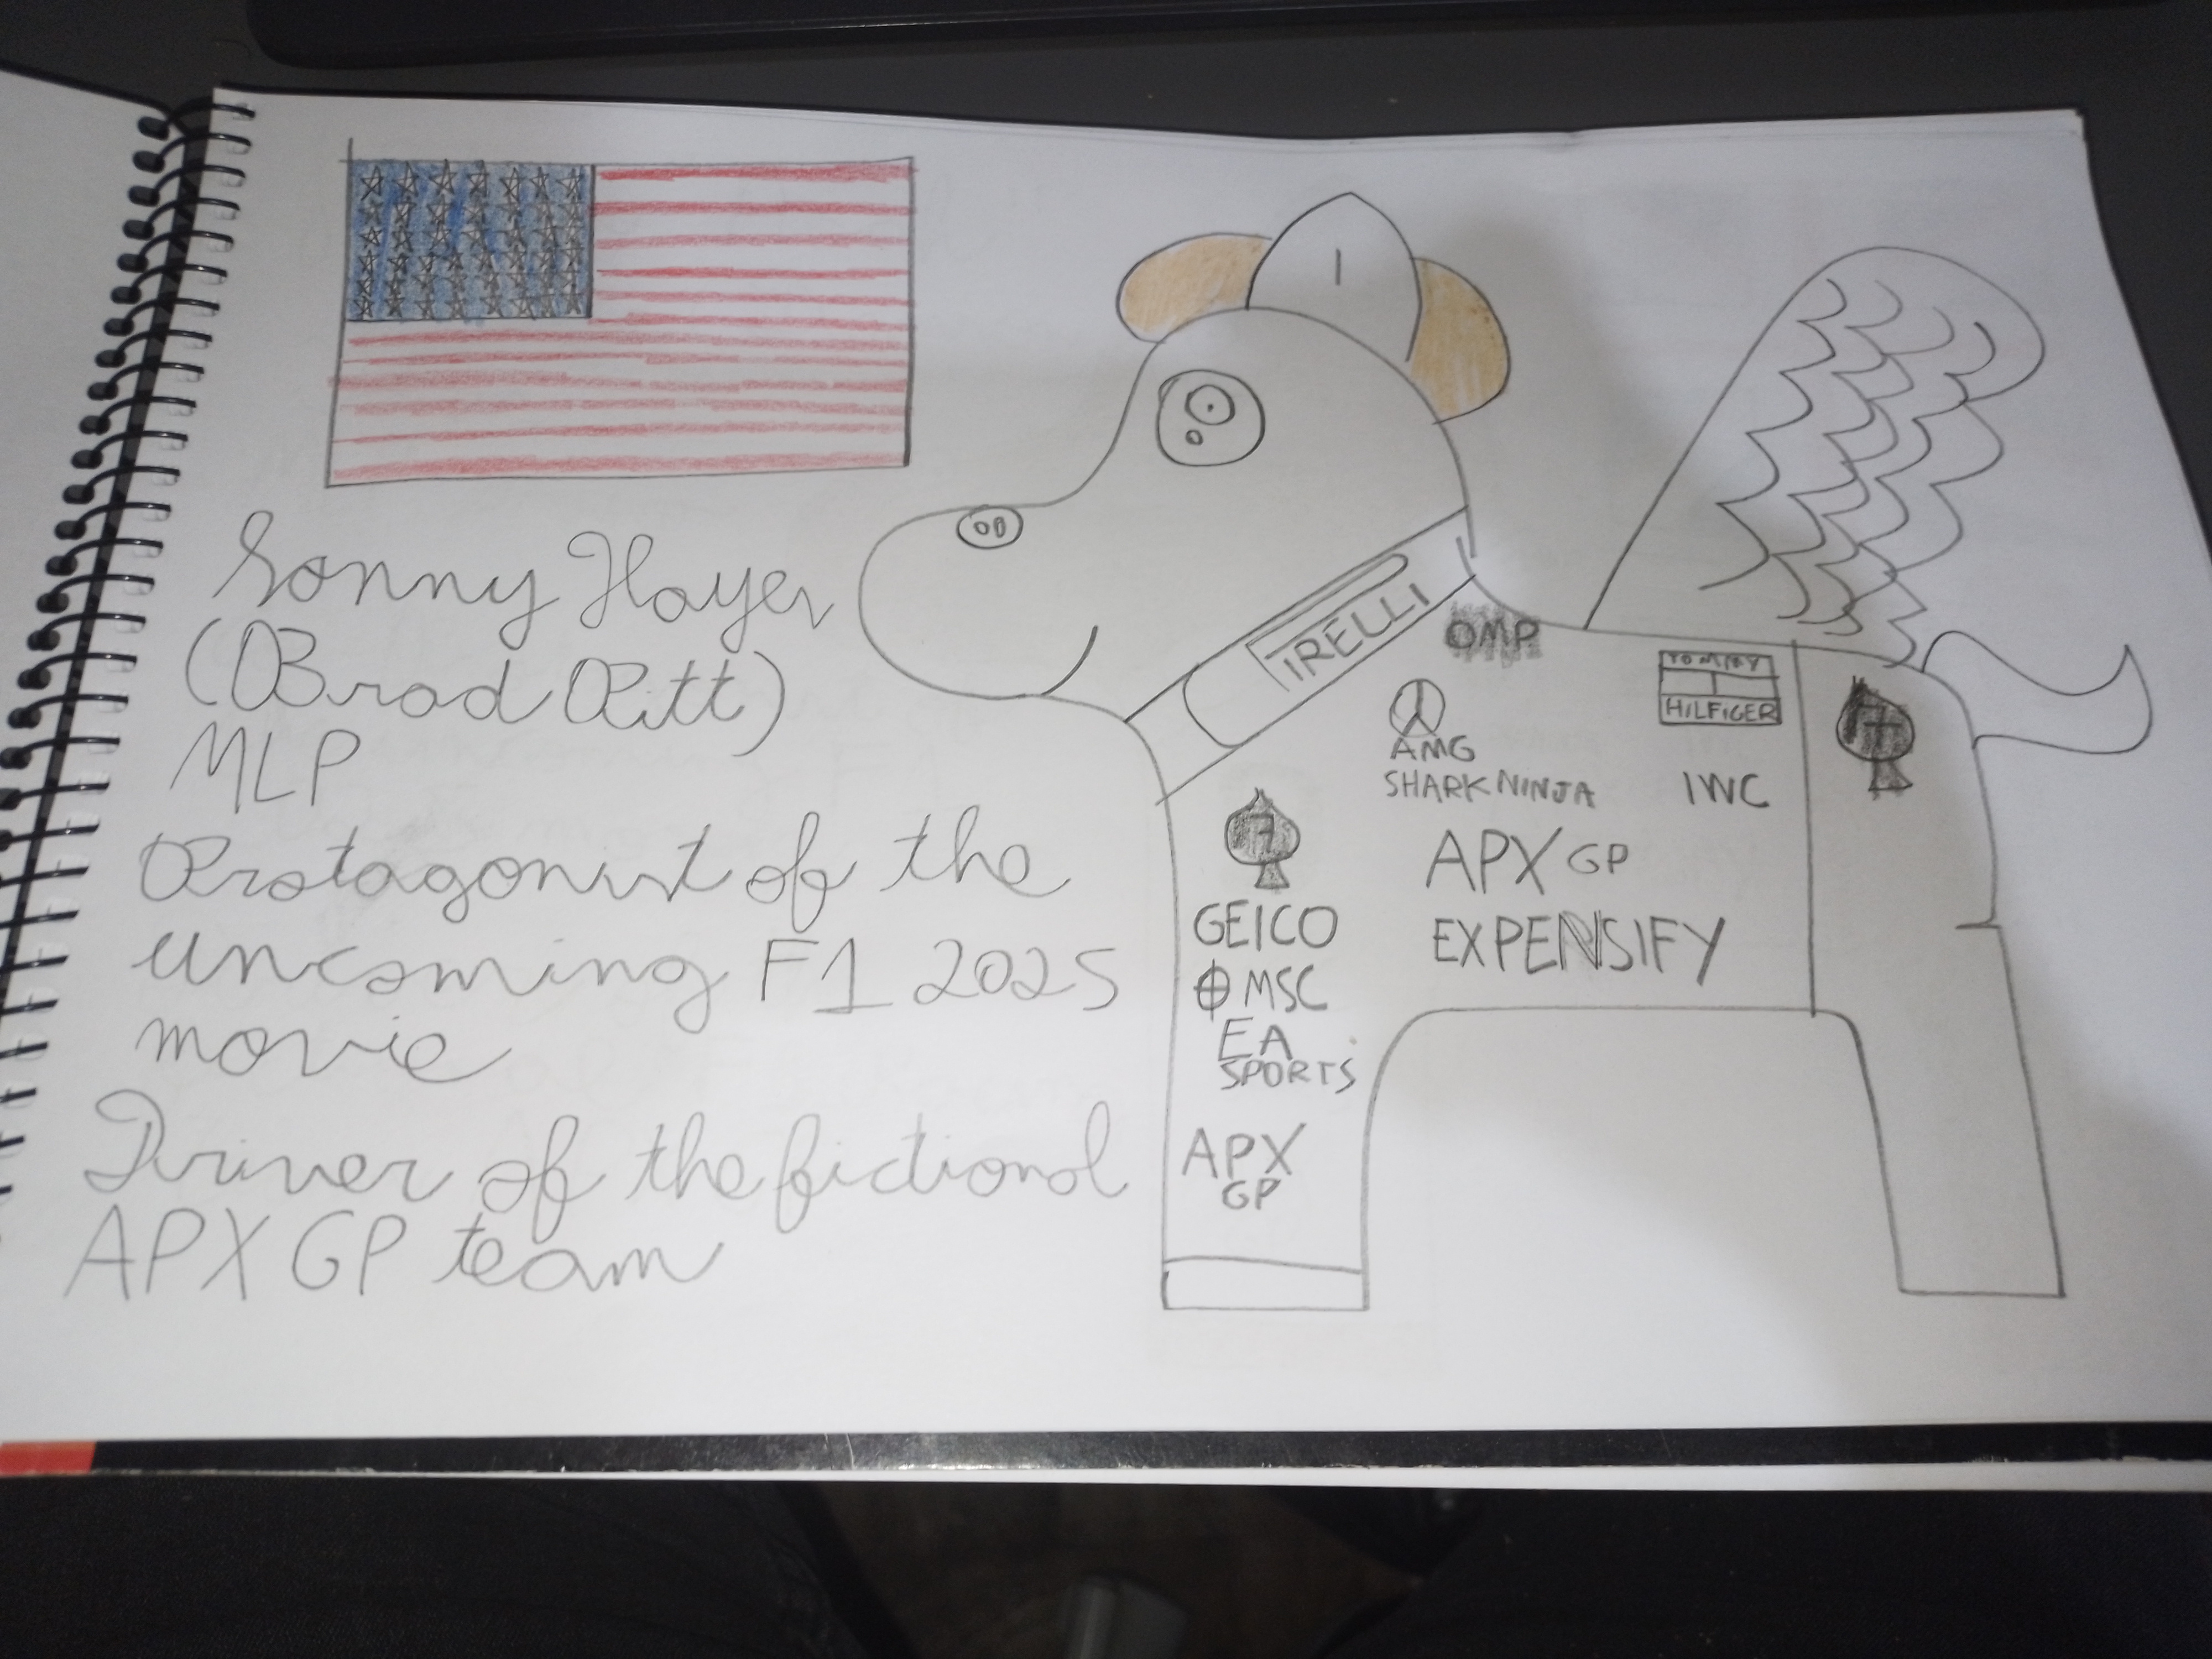 Sonny Hayes
(Brad Pitt)
MLP
Protagonist of the
upcoming F1 2025
movie
Driver of the fictional
APX GP team
PIRELLI
OMP
AMG
SHARK NINJA
TOMMY
HILFIGER
IWC
7
7
GEICO
MSC
EA
SPORTS
APX
GP
APX GP
EXPENSIFY